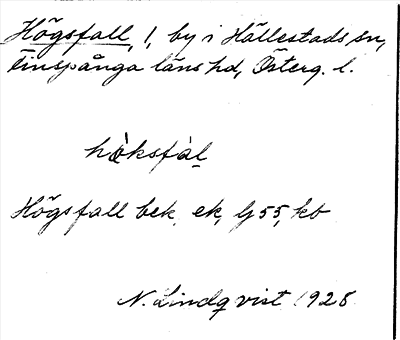 Högsfall, 1, by i Hällestads sn,
Finspånga läns hd, Österg. l.
hö̀ksfàl
Högsfall bek. ek, Gj 55, kb
N. Lindqvist 1928